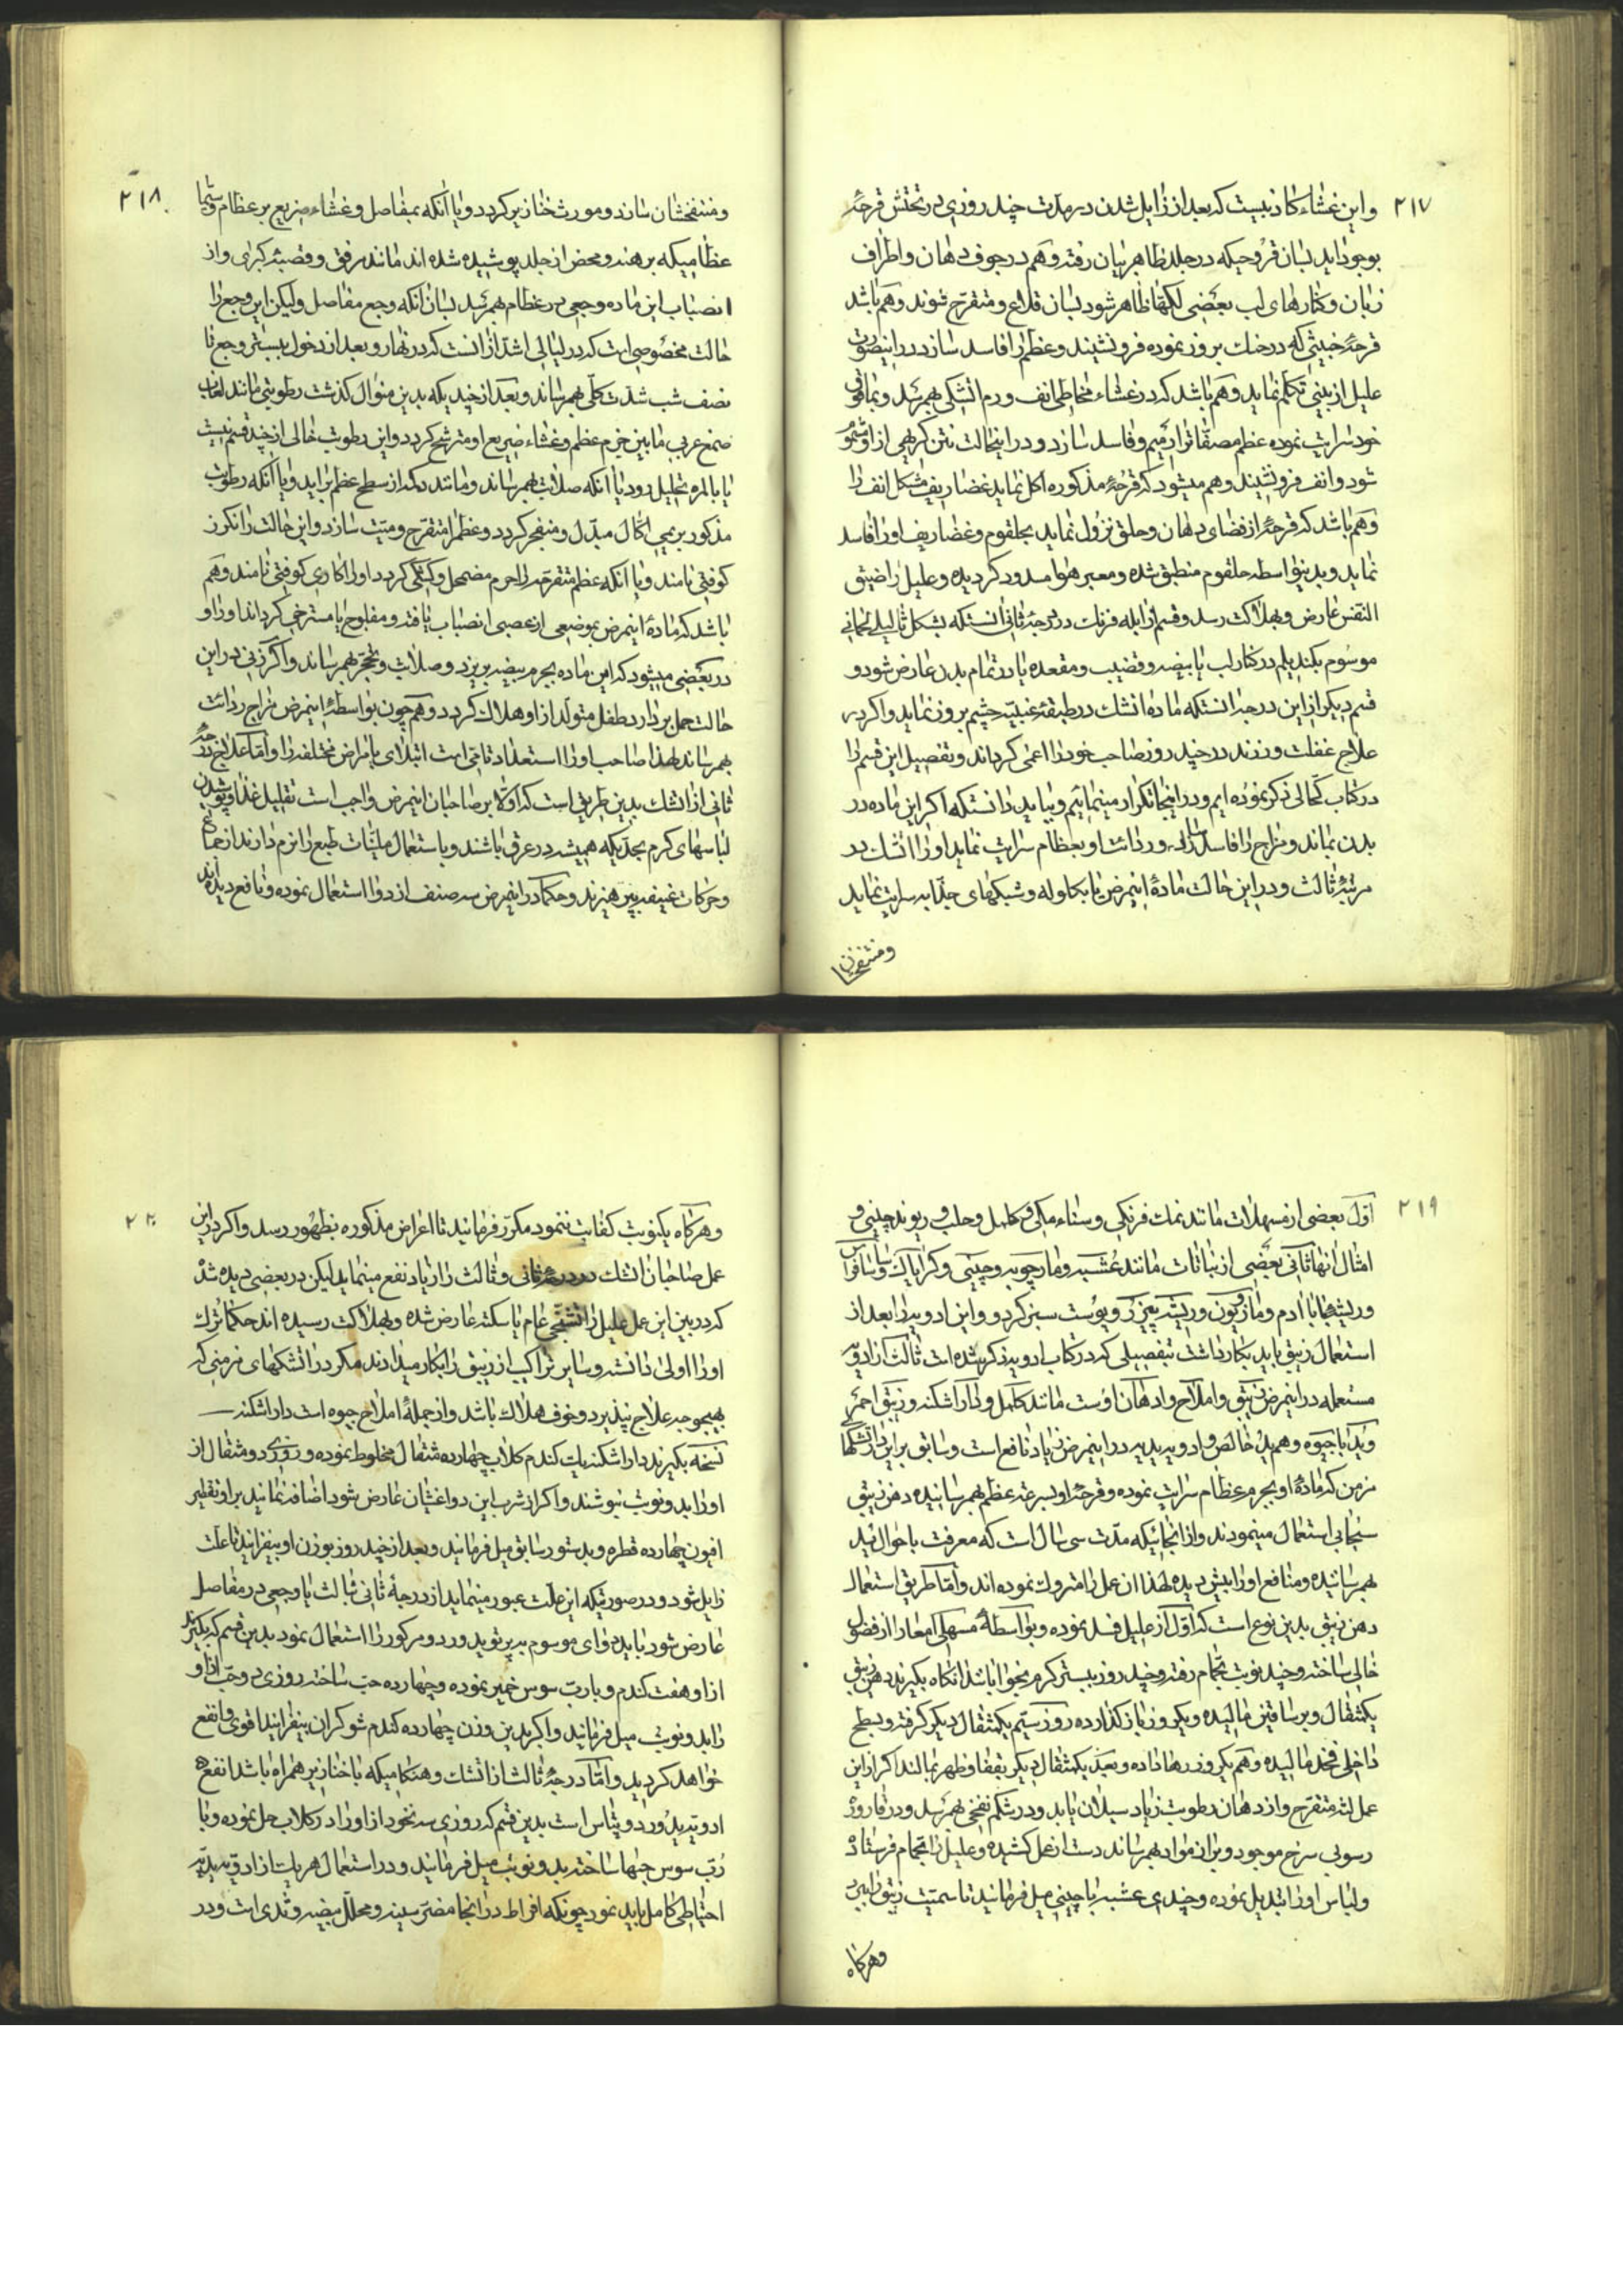 ۲۱۷
و این غشاء کاذبیست که بعد از زایل شدن در مدت چند روزی در تحتش قرحهٔ
بوجود آید بسان قروحیکه در جلد ظاهر بیان رفته و هم در جوف دهان و اطراف
زبان و کنارهای لب بعضی لکها ظاهر شود بسان قلاع و متقرح شوند و هم باشد
قرحهٔ خبیثی که در حنك بروز نموده فرو نشیند و عظم را فاسد سازد در اینصورت
علیل از بینی تکلم نماید و هم باشد که در غشاء مخاطی انف ورم آتشکی بهمرسد و بمافوق
خود سرایت نموده عظم مصفاة را رمیم و فاسد سازد و در اینحالت نتن کریهی از او مشموم
شود و انف فرو نشیند و هم میشود که قرحهٔ مذکوره اکل نماید غضاریف شکل انف را
و هم باشد که قرحهٔ از فضای دهان و حلق نزول نماید بحلقوم و غضاریف او را فاسد
نماید و بدینواسطه حلقوم منطبق شده و معبر هوا مسدود کردیده و علیل را ضیق
النفس عارض و بهلاکت رسد و قسم از آبله فرنك در درجهٔ ثانی آنستکه بشکل ثالیل لحمانی
موسوم بکندیلم در کنار لب یا بیضه و قضیب و مقعده یا در تمام بدن عارض شود و
قسم دیکر از این درجه آنستکه مادهٔ آتشك در طبقهٔ عنبیه چشم بروز نماید و اکر در
علاج غفلت ورزند در چند روز صاحب خود را اعمی کرداند و تفصیل این قسم را
در کتاب کحالی ذکر نموده ایم و در اینجا تکرار مینمائیم و بباید دانستکه اکر این ماده در
بدن بماند و مزاج را فاسد سازد و ردائت او بعظام سرایت نماید او را آتشك در
مرتبهٔ ثالث و در این حالت مادهٔ اینمرض یا بکلوله و شبکهای جذابه سرایت نماید
و منتفخشان
۲۱۸
و منتفخشان سازد و مورث خنازیر کردد و یا آنکه بمفاصل و غشاء ضریع بر عظام و سیما
عظامیکه برهنه و محض از جلد پوشیده شده اند مانند مرفق و قصبهٔ کبری و از
انصباب این ماده وجعی در عظام بهمرسد بسان آنکه وجع مفاصل ولیکن این وجع را
حالت مخصوصی است که در لیالی اشد از آنست که در نهار و بعد از دخول ببستر وجع تا
نصف شب شدت کلی بهمرساند و بعد از چندیکه بدین منوال کذشت رطوبتی مانند لعاب
صمغ عربی مابین جرم عظم و غشاء ضریع او مترشح کردد و این رطوبت خالی از چند قسم نیست
یا بالمره تحلیل رود یا آنکه صلابت بهمرساند و مانند دمل از سطح عظم برآید و یا آنکه رطوبت
مذکور بریمی اکال مبدل و منفجر کردد و عظم را متقرح و میت سازد و این حالت را نکرز
کوفتی نامند و یا آنکه عظم متقرح را جرم مضمحل و کمی کردد او را کاری کوفتی نامند و هم
باشد که مادهٔ اینمرض بموضعی از عصبی انصباب یافته و مفلوج یا مسترخی کرداند او را و
در بعضی میشود که این ماده بجرم بیضه بریزد و صلابت و تحجر بهمرساند و اکر زنی در این
حالت حمل بردارد طفل متولد از او هلاك کردد و هم چون بواسطهٔ اینمرض مزاج ردائت
بهمرساند لهذا صاحب او را استعداد تامی است ابتلای بامراض مختلفه را و اما علاج درجهٔ
ثانی از آتشك بدین طریق است که اولا بر صاحبان اینمرض واجب است تقلیل غذا و پوشیدن
لباسهای کرم بحدیکه همیشه در عرق باشند و باستعمال ملینات طبع را نرم دارند از جماع
و حرکات عنیفه بپرهیزند و حکما در اینمرض سه صنف از دوا استعمال نموده و نافع دیده اند
۲۱۹
اول بعضی از مسهلات مانند نمك فرنکی و سناء مکی و کلمل و جلب و ریوند چینی و
امثال آنها ثانی بعضی از نباتات مانند عشبه و مارچوبه و چینی و کرایاك و ساسافراس
و ریشهٔ بابا آدم و مازریون و ریشه یعزك و پوست سبز کردو و این ادویه را بعد از
استعمال زیبق باید بکار داشت بتفصیلی که در کتاب ادویه ذکر شده است ثالث از ادویهٔ
مستعمله در اینمرض زیبق و املاح و ادهان اوست مانند کلمل و داراشکنه و زیبق احمر
و ید با جیوه و هم ید خالص و ادویه یدیه در اینمرض زیاد نافع است و سابق بر این در آتشکهای
مزمن که مادهٔ او بجرم عظام سرایت نموده و قرحهٔ او بسرعت عظم بهمرسانیده دهن زیبق
سنجابی استعمال مینمودند و از آنجائیکه مدت سی سال است که معرفت باحوال ید
بهمرسانیده و منافع او را بیش دیده لهذا آن عمل را متروك نموده اند و اما طریق استعمال
دهن زیبق بدین نوع است که اول از علیل فصد نموده و بواسطهٔ مسهلی امعا را از فضول
خالی ساخته و چند نوبت بحمام رفته و چند روز ببستر کرم بخوابا باشد آنکاه بکیرند دهن زیبق
یکمثقال و بر ساقین مالیده و یکروز باز کذارده روز سیم یکمثقال دیکر کرفته و بسطح
داخلی فخذ مالیده و هم یکروز رها داده و بعد یکمثقال دیکر بقفا و ظهر بمالند اکر از این
عمل لثه متقرح و از دهان رطوبت زیاد سیلان یابد و در شکم نفخی بهمرسد و در قاروره
رسوبی سرخ موجود و براز مواد بهمرساند دست از عمل کشیده و علیل را بحمام فرستاده
و لباس او را تبدیل نموده و چندی عشبه یا چینی میل فرمایند تا سمیت زیبق زایل
و هرکاه
۲۲۰
و هرکاه یکنوبت کفایت ننمود مکرر فرمایند تا اعراض مذکوره بظهور رسد و اکر در این
عمل صاحبان آتشك در درجهٔ ثانی و ثالث را زیاد نفع مینماید لیکن در بعضی دیده شد
که در بین این عمل علیل را تشنجی عام یا سکته عارض شده و بهلاکت رسیده اند حکما ترك
او را اولی دانسته و سایر تراکیب از زیبق را بکار میدارند مکر در آتشکهای مزمنی که
بهیچوجه علاج نپذیرد و خوف هلاك باشد و از جملهٔ املاح جیوه است داراشکنه
نسخه بکیرند داراشکنه یك کندم کلاب چهارده مثقال مخلوط نموده و روزی دو مثقال از
او را بدو نوبت بنوشند و اکر از شرب این دوا غثیان عارض شود اضافه نمایند بر او تقطیر
افیون چهارده قطره و بدستور سابق میل فرمایند و بعد از چند روز بوزن او بیفزایند تا علت
زایل شود و در صورتیکه این علت عبور مینماید از درجهٔ ثانی بثالث یا وجعی در مفاصل
عارض شود باید دوای موسوم به پرتوید ورد و مرکور را استعمال نمود بدین قسم که بکیرند
از او هفت کندم و با رب سوس خمیر نموده و چهارده حب ساخته روزی دو حب از او
را بدو نوبت میل فرمایند و اکر بدین وزن چهارده کندم شوکران بیفزایند اقوی و انفع
خواهد کردید و اما در درجهٔ ثالث از آتشك و هنکامیکه با خنازیر همراه باشد انفع
ادویه یدور دو پتاس است بدین قسم که روزی سه نخود از او را در کلاب حل نموده و یا
رب سوس حبها ساخته بدو نوبت میل فرمایند و در استعمال هریك از ادویه یدیه
احتیاطی کامل باید نمود چونکه افراط در آنجا مضر سینه و محلل بیضه و ثدی است و در